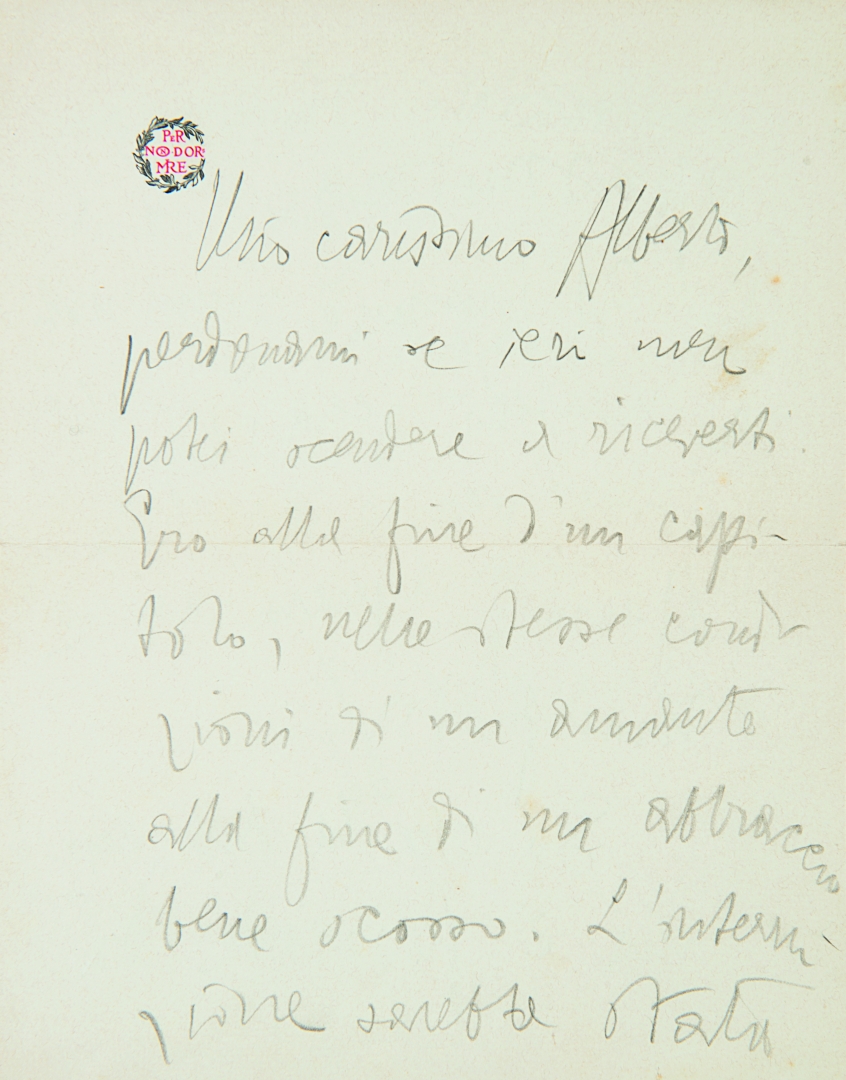 PER
NON DOR
MIRE
Mio carissimo Alberto,
perdonami se ieri non
potei scendere a riceverti.
Ero alla fine d'un capi-
tolo, nelle stesse condi-
zioni di un amante
alla fine di un abbraccio
bene scosso. L'interru-
zione sarebbe stata